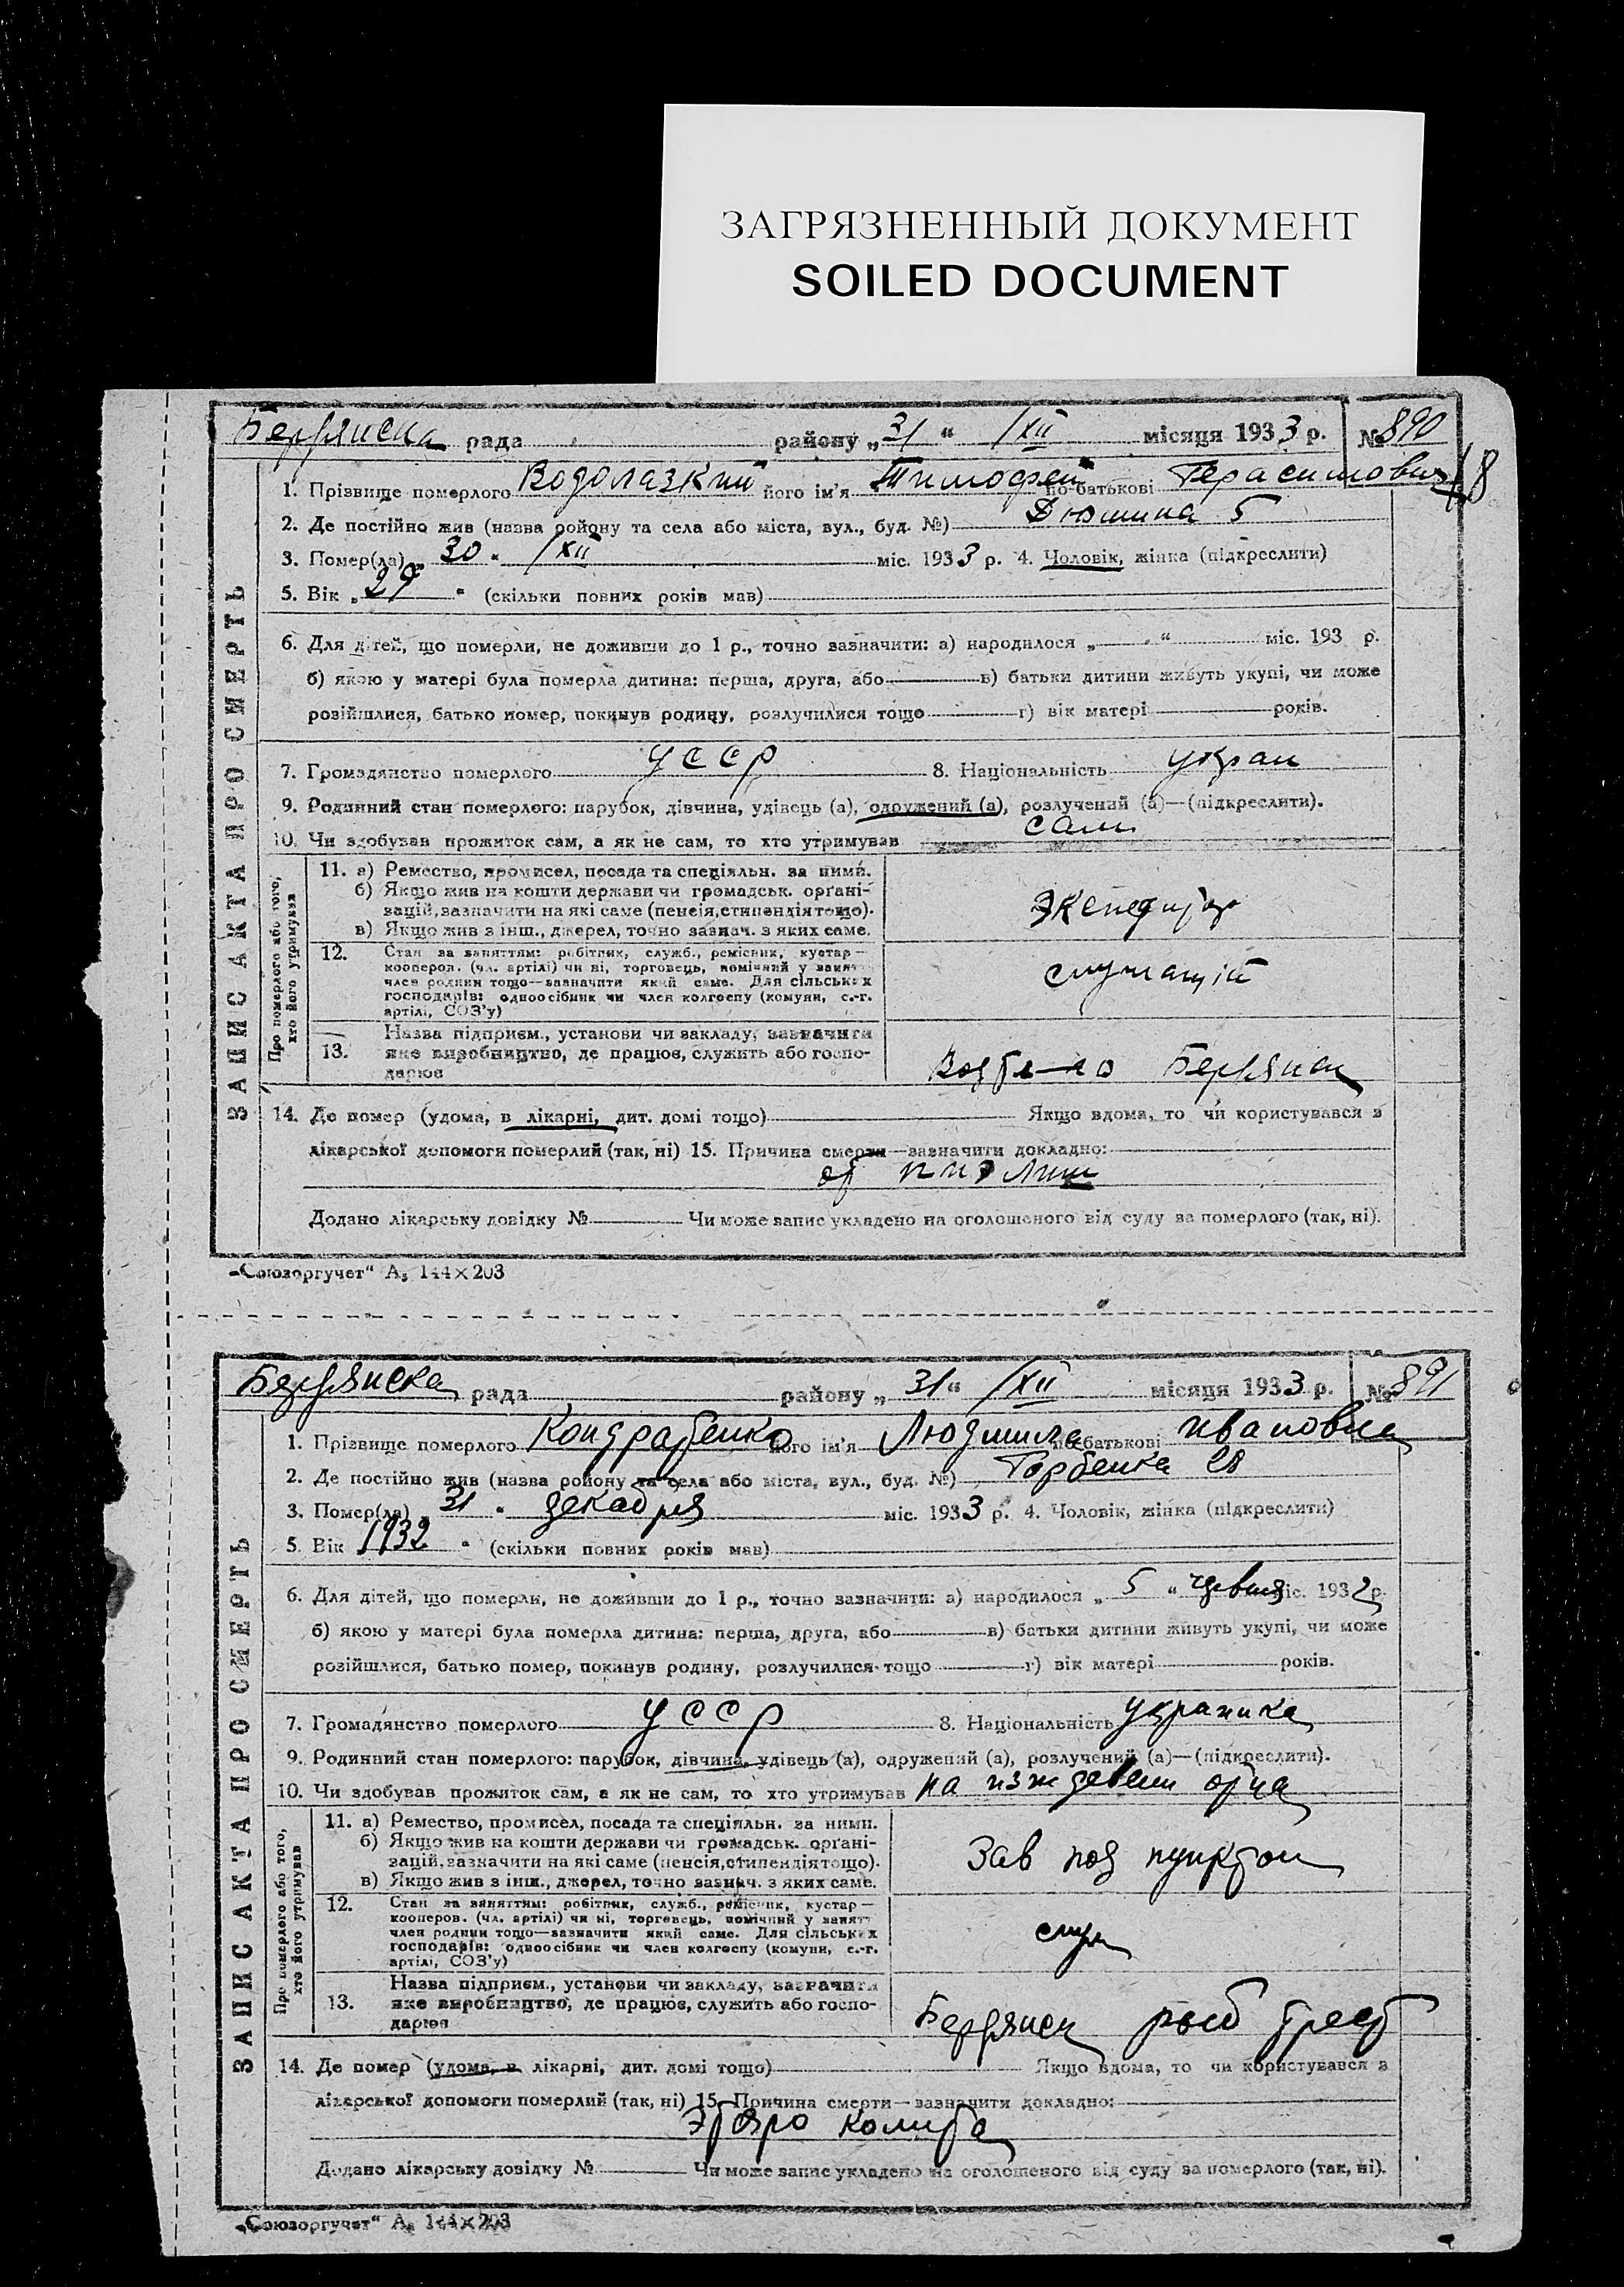 ЗАГРЯЗНЕННЫЙ ДОКУМЕНТ
SOILED DOCUMENT
ЗАПИС АКТА ПРО СМЕРТЬ
Бердянска рада района „31“ /XII місяця 1933 р. № 890
1. Прізвище померлого Водолазкий його ім'я Тимофей по-батькові Герасимович 18
2. Де постійно жив (назва району та села або міста, вул., буд. №) Дюмина 5
3. Помер(ла) „30“ /XII міс. 1933 р. 4. Чоловік, жінка (підкреслити)
5. Вік „29“ (скільки повних років мав)
6. Для дітей, що померли, не доживши до 1 р., точно зазначити: а) народилося „ “ міс. 193 р.
б) якою у матері була померла дитина: перша, друга, або в) батьки дитини живуть укупі, чи може
розійшлися, батько помер, покинув родину, розлучилися тощо г) вік матері років.
7. Громадянство померлого УССР 8. Національність укран
9. Родинний стан померлого: парубок, дівчина, удівець (а), одружений (а), розлучений (а)—(підкреслити).
10. Чи здобував прожиток сам, а як не сам, то хто утримував сам
Про померлого або того, хто його утримував
11. а) Ремество, промисел, посада та спеціяльн. за ними.
б) Якщо жив на кошти держави чи громадськ. орґані-
зацій, зазначити на які саме (пенсія, стипендія тощо).
в) Якщо жив з інш., джерел, точно зазнач. з яких саме.
Экспедитор
12. Стан за заняттям: робітник, служб., ремісник, кустар—
кооперов. (чл. артілі) чи ні, торговець, помічний у занятт
член родини тощо—зазначити який саме. Для сільських
господарів: одноосібник чи член колгоспу (комуни, с.-г.
артілі, СОЗ'у)
служащий
13. Назва підприєм., установи чи закладу, зазначити
яке виробництво, де працює, служить або госпо-
дарює
Бердянск
14. Де помер (удома, в лікарні, дит. домі тощо) Якщо вдома, то чи користувався з
лікарської допомоги померлий (так, ні) 15. Причина смерти—зазначити докладно:
от
Додано лікарську довідку № Чи може запис укладено на оголошеного від суду за померлого (так, ні).
„Союзоргучет“ А₅ 144×203
ЗАПИС АКТА ПРО СМЕРТЬ
Бердянска рада району „31“ /XII місяця 1933 р. № 891
1. Прізвище померлого Кондратенко його ім'я Людмила по-батькові Ивановна
2. Де постійно жив (назва району та села або міста, вул., буд. №) Горбенка 28
3. Помер(ла) „31“ декабря міс. 1933 р. 4. Чоловік, жінка (підкреслити)
5. Вік 1932 “ (скільки повних років мав)
6. Для дітей, що померли, не доживши до 1 р., точно зазначити: а) народилося „5“ міс. 1932 р.
б) якою у матері була померла дитина: перша, друга, або в) батьки дитини живуть укупі, чи може
розійшлися, батько помер, покинув родину, розлучилися тощо г) вік матері років.
7. Громадянство померлого УССР 8. Національність украинка
9. Родинний стан померлого: парубок, дівчина, удівець (а), одружений (а), розлучений (а)—(підкреслити).
10. Чи здобував прожиток сам, а як не сам, то хто утримував на иждевени отца
Про померлого або того, хто його утримував
11. а) Ремество, промисел, посада та спеціяльн. за ними.
б) Якщо жив на кошти держави чи громадськ. орґані-
зацій, зазначити на які саме (пенсія, стипендія тощо).
в) Якщо жив з інш., джерел, точно зазнач. з яких саме.
Зав под пунктом
12. Стан за заняттям: робітник, служб., ремісник, кустар—
кооперов. (чл. артілі) чи ні, торговець, помічний у занятт
член родини тощо—зазначити який саме. Для сільських
господарів: одноосібник чи член колгоспу (комуни, с.-г.
артілі, СОЗ'у)
служ
13. Назва підприєм., установи чи закладу, зазначити
яке виробництво, де працює, служить або госпо-
дарює
Бердянск рыб трест
14. Де помер (удома, в лікарні, дит. домі тощо) Якщо вдома, то чи користувався з
лікарської допомоги померлий (так, ні) 15. Причина смерти—зазначити докладно:
колита
Додано лікарську довідку № Чи може запис укладено на оголошеного від суду за померлого (так, ні).
„Союзоргучет“ А₅ 144×203